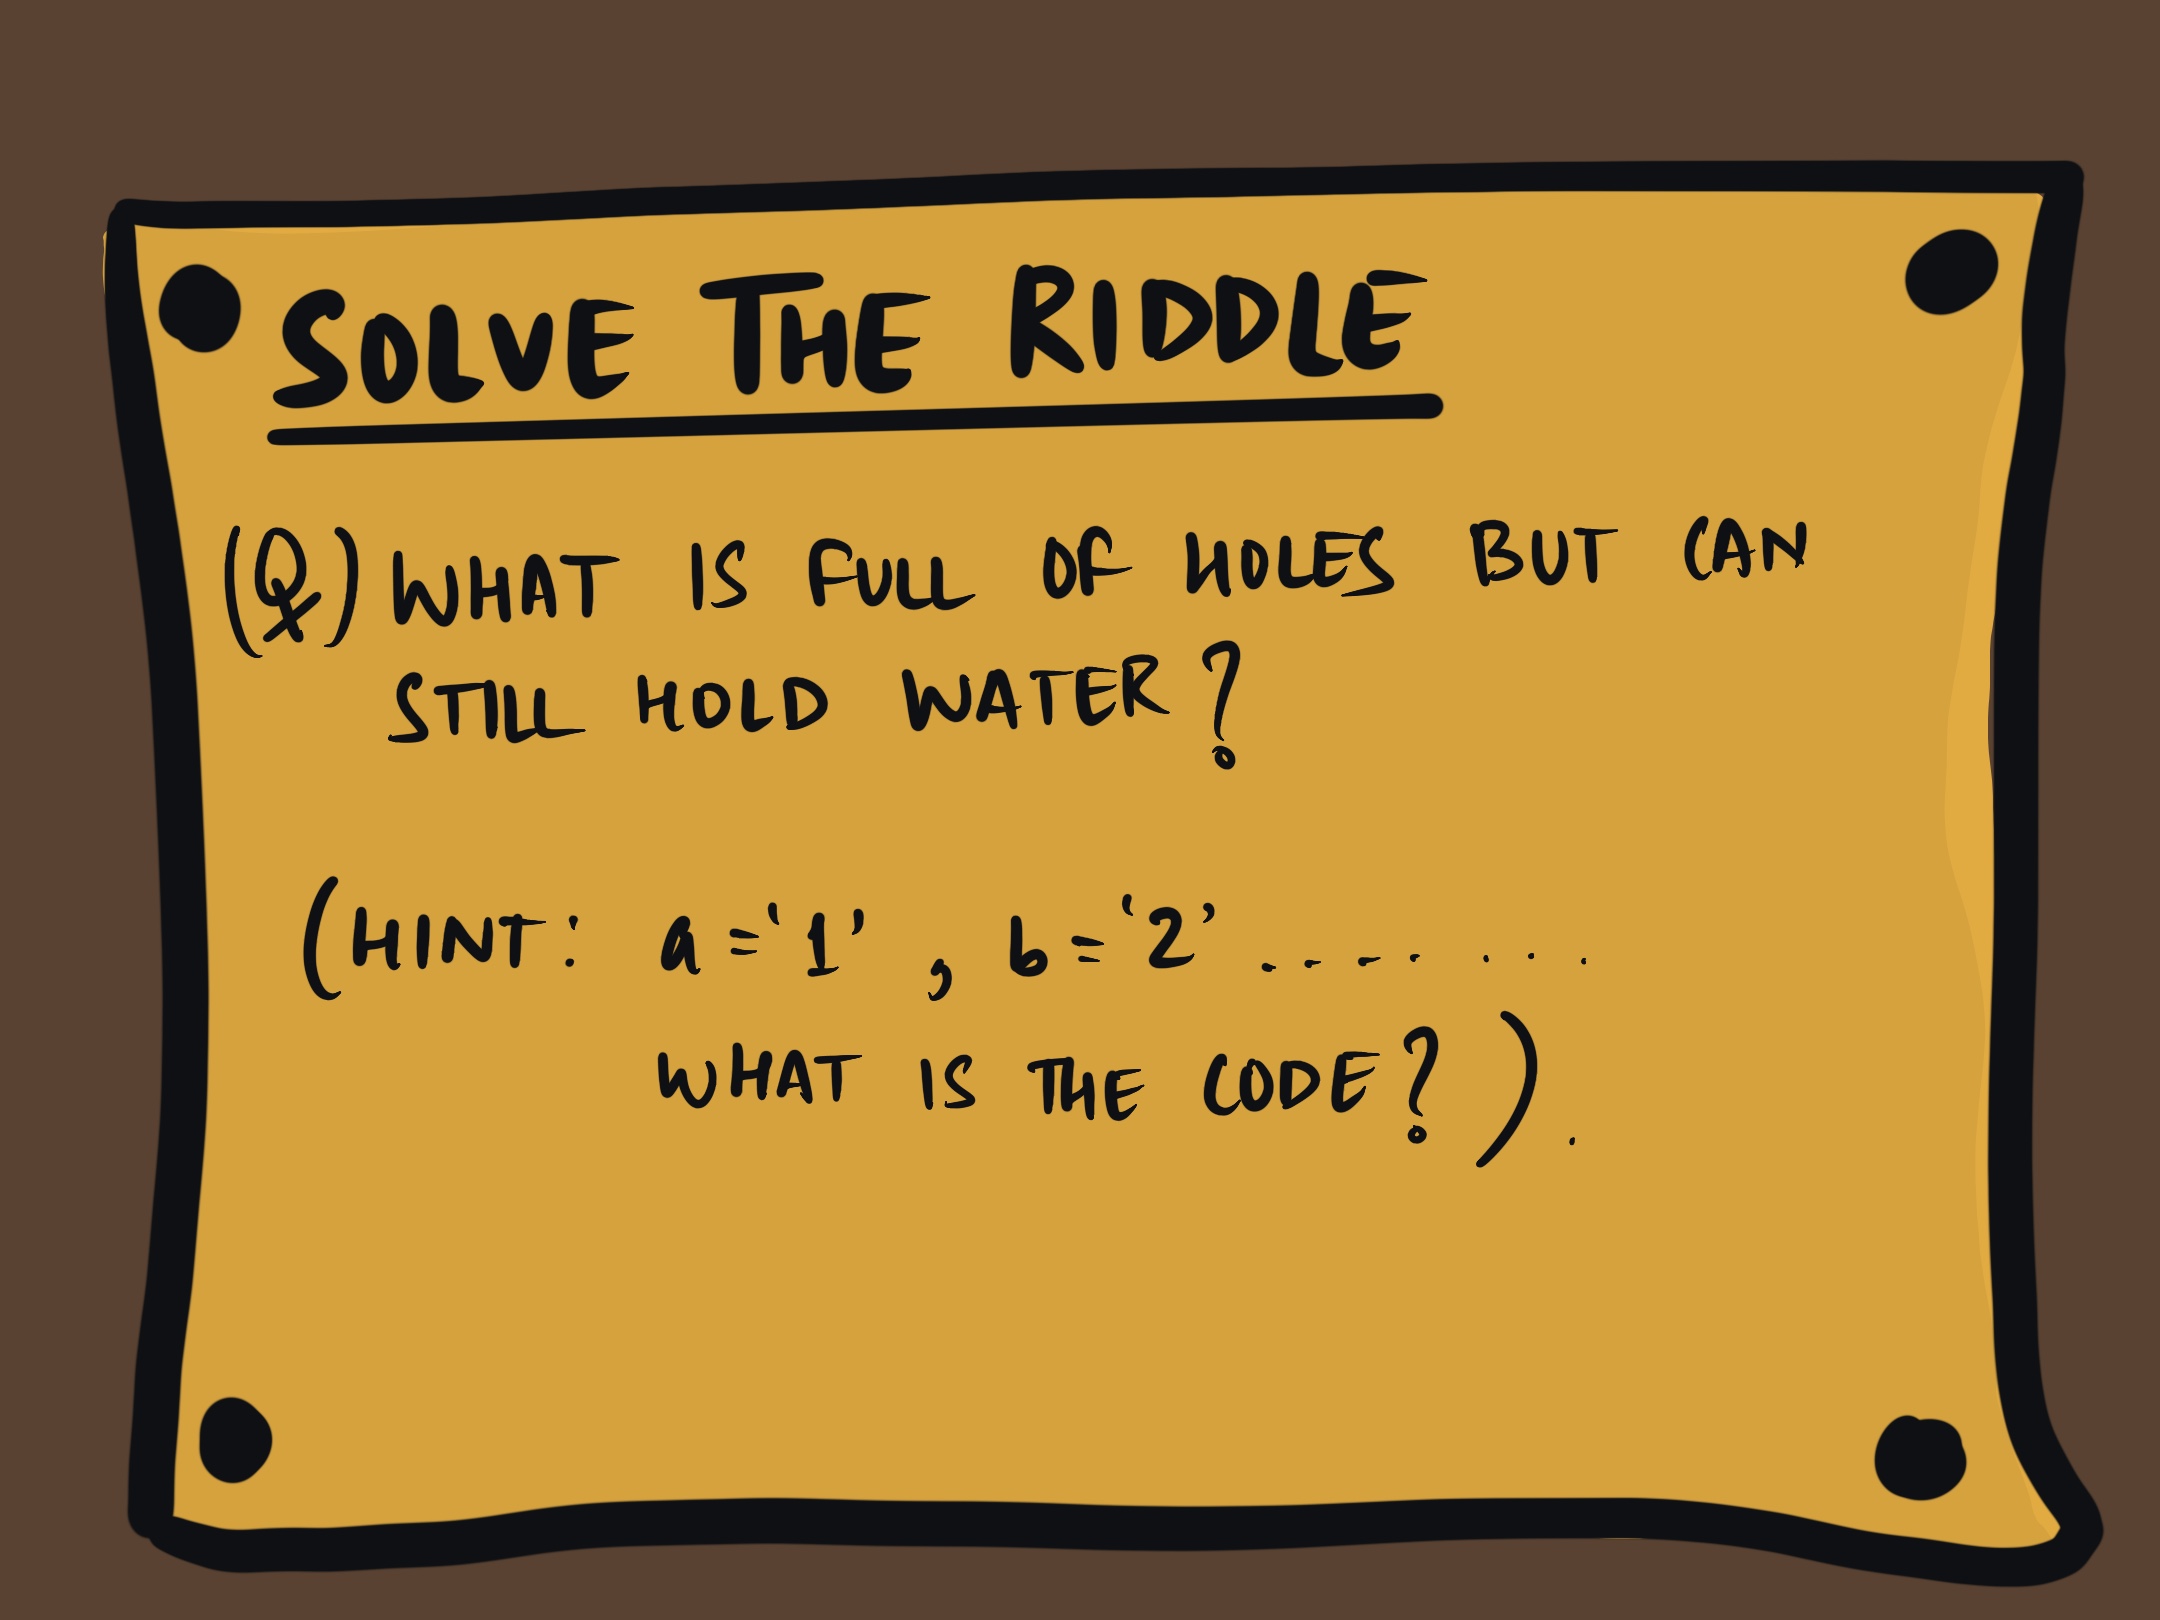 SOLVE THE RIDDLE
(Q) WHAT IS FULL OF HOLES BUT CAN
STILL HOLD WATER?
(HINT: a='1', b='2'.......
WHAT IS THE CODE?).